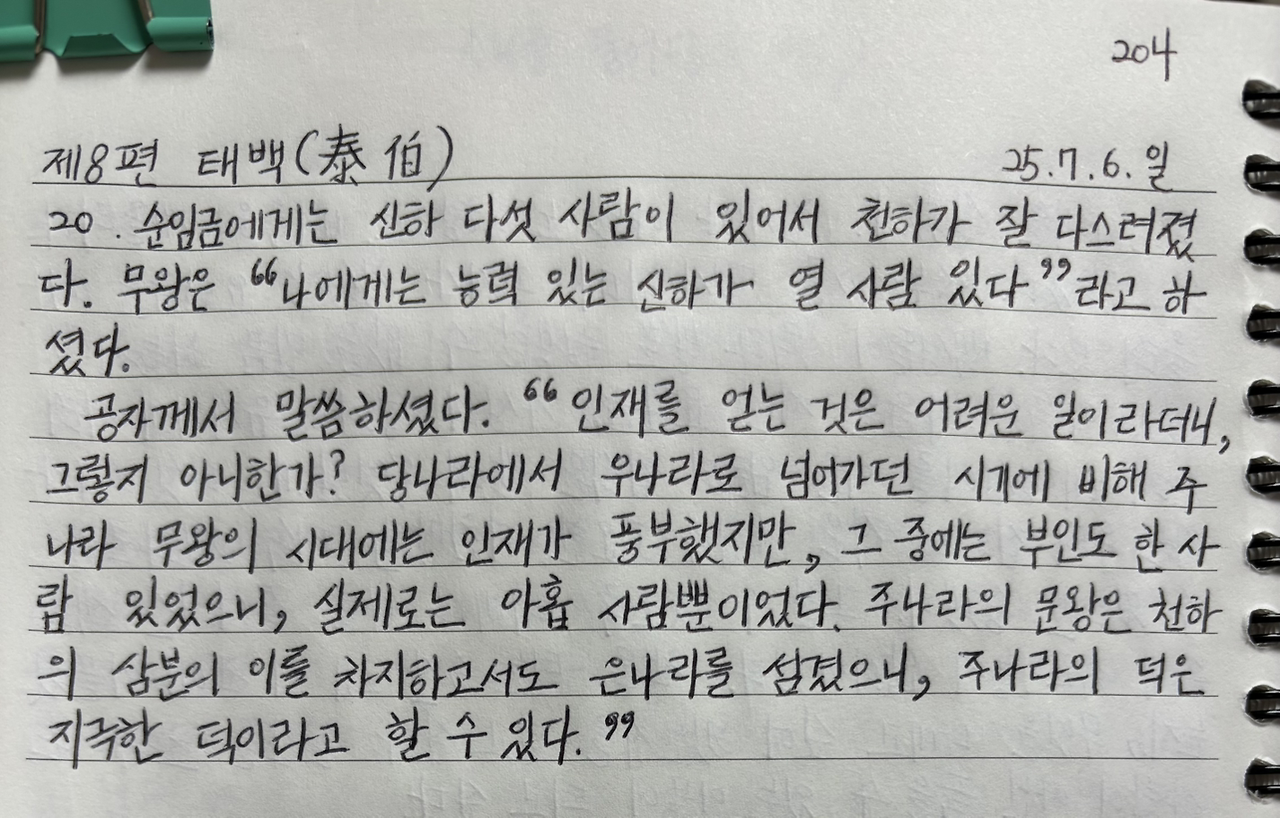 204
제8편 태백(泰伯) 25.7.6.일
20. 순임금에게는 신하 다섯 사람이 있어서 천하가 잘 다스려졌
다. 무왕은 “나에게는 능력 있는 신하가 열 사람 있다”라고 하
셨다.
공자께서 말씀하셨다. “인재를 얻는 것은 어려운 일이라더니,
그렇지 아니한가? 당나라에서 우나라로 넘어가던 시기에 비해 주
나라 무왕의 시대에는 인재가 풍부했지만, 그 중에는 부인도 한 사
람 있었으니, 실제로는 아홉 사람뿐이었다. 주나라의 문왕은 천하
의 삼분의 이를 차지하고서도 은나라를 섬겼으니, 주나라의 덕은
지극한 덕이라고 할 수 있다.”